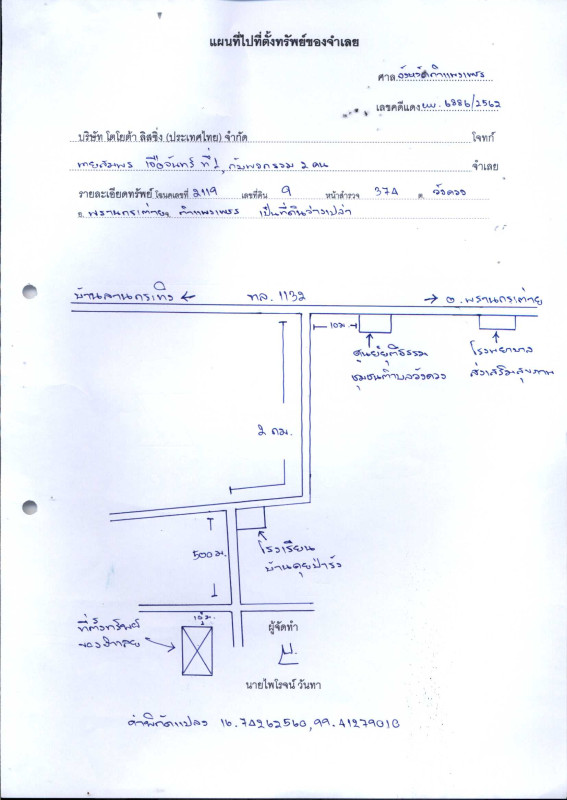 แผนที่ไปที่ตั้งทรัพย์ของจำเลย
ศาล จังหวัดกำแพงเพชร
เลขคดีแดง ผบ. 6386/2562
บริษัท โตโยต้า ลีสซิ่ง (ประเทศไทย) จำกัด โจทก์
ที่ 1, กับพวกรวม 2 คน จำเลย
รายละเอียดทรัพย์ โฉนดเลขที่ 2119 เลขที่ดิน 9 หน้าสำรวจ 374 ต. วังควง
อ. พรานกระต่าย จ. กำแพงเพชร เป็นที่ดินว่างเปล่า
บ้านลานกระทิง ← ทล. 1132 → อ. พรานกระต่าย
10 ม.
ศูนย์ยุติธรรม
ชุมชนตำบลวังควง
โรงพยาบาล
ส่งเสริมสุขภาพ
2 กม.
500 ม.
โรงเรียน
บ้านคุยป่ารัง
ที่ตั้งทรัพย์
ของจำเลย
ผู้จัดทำ
นายไพโรจน์ วันทา
ค่าพิกัดแปลง 16.74262560, 99.41279010